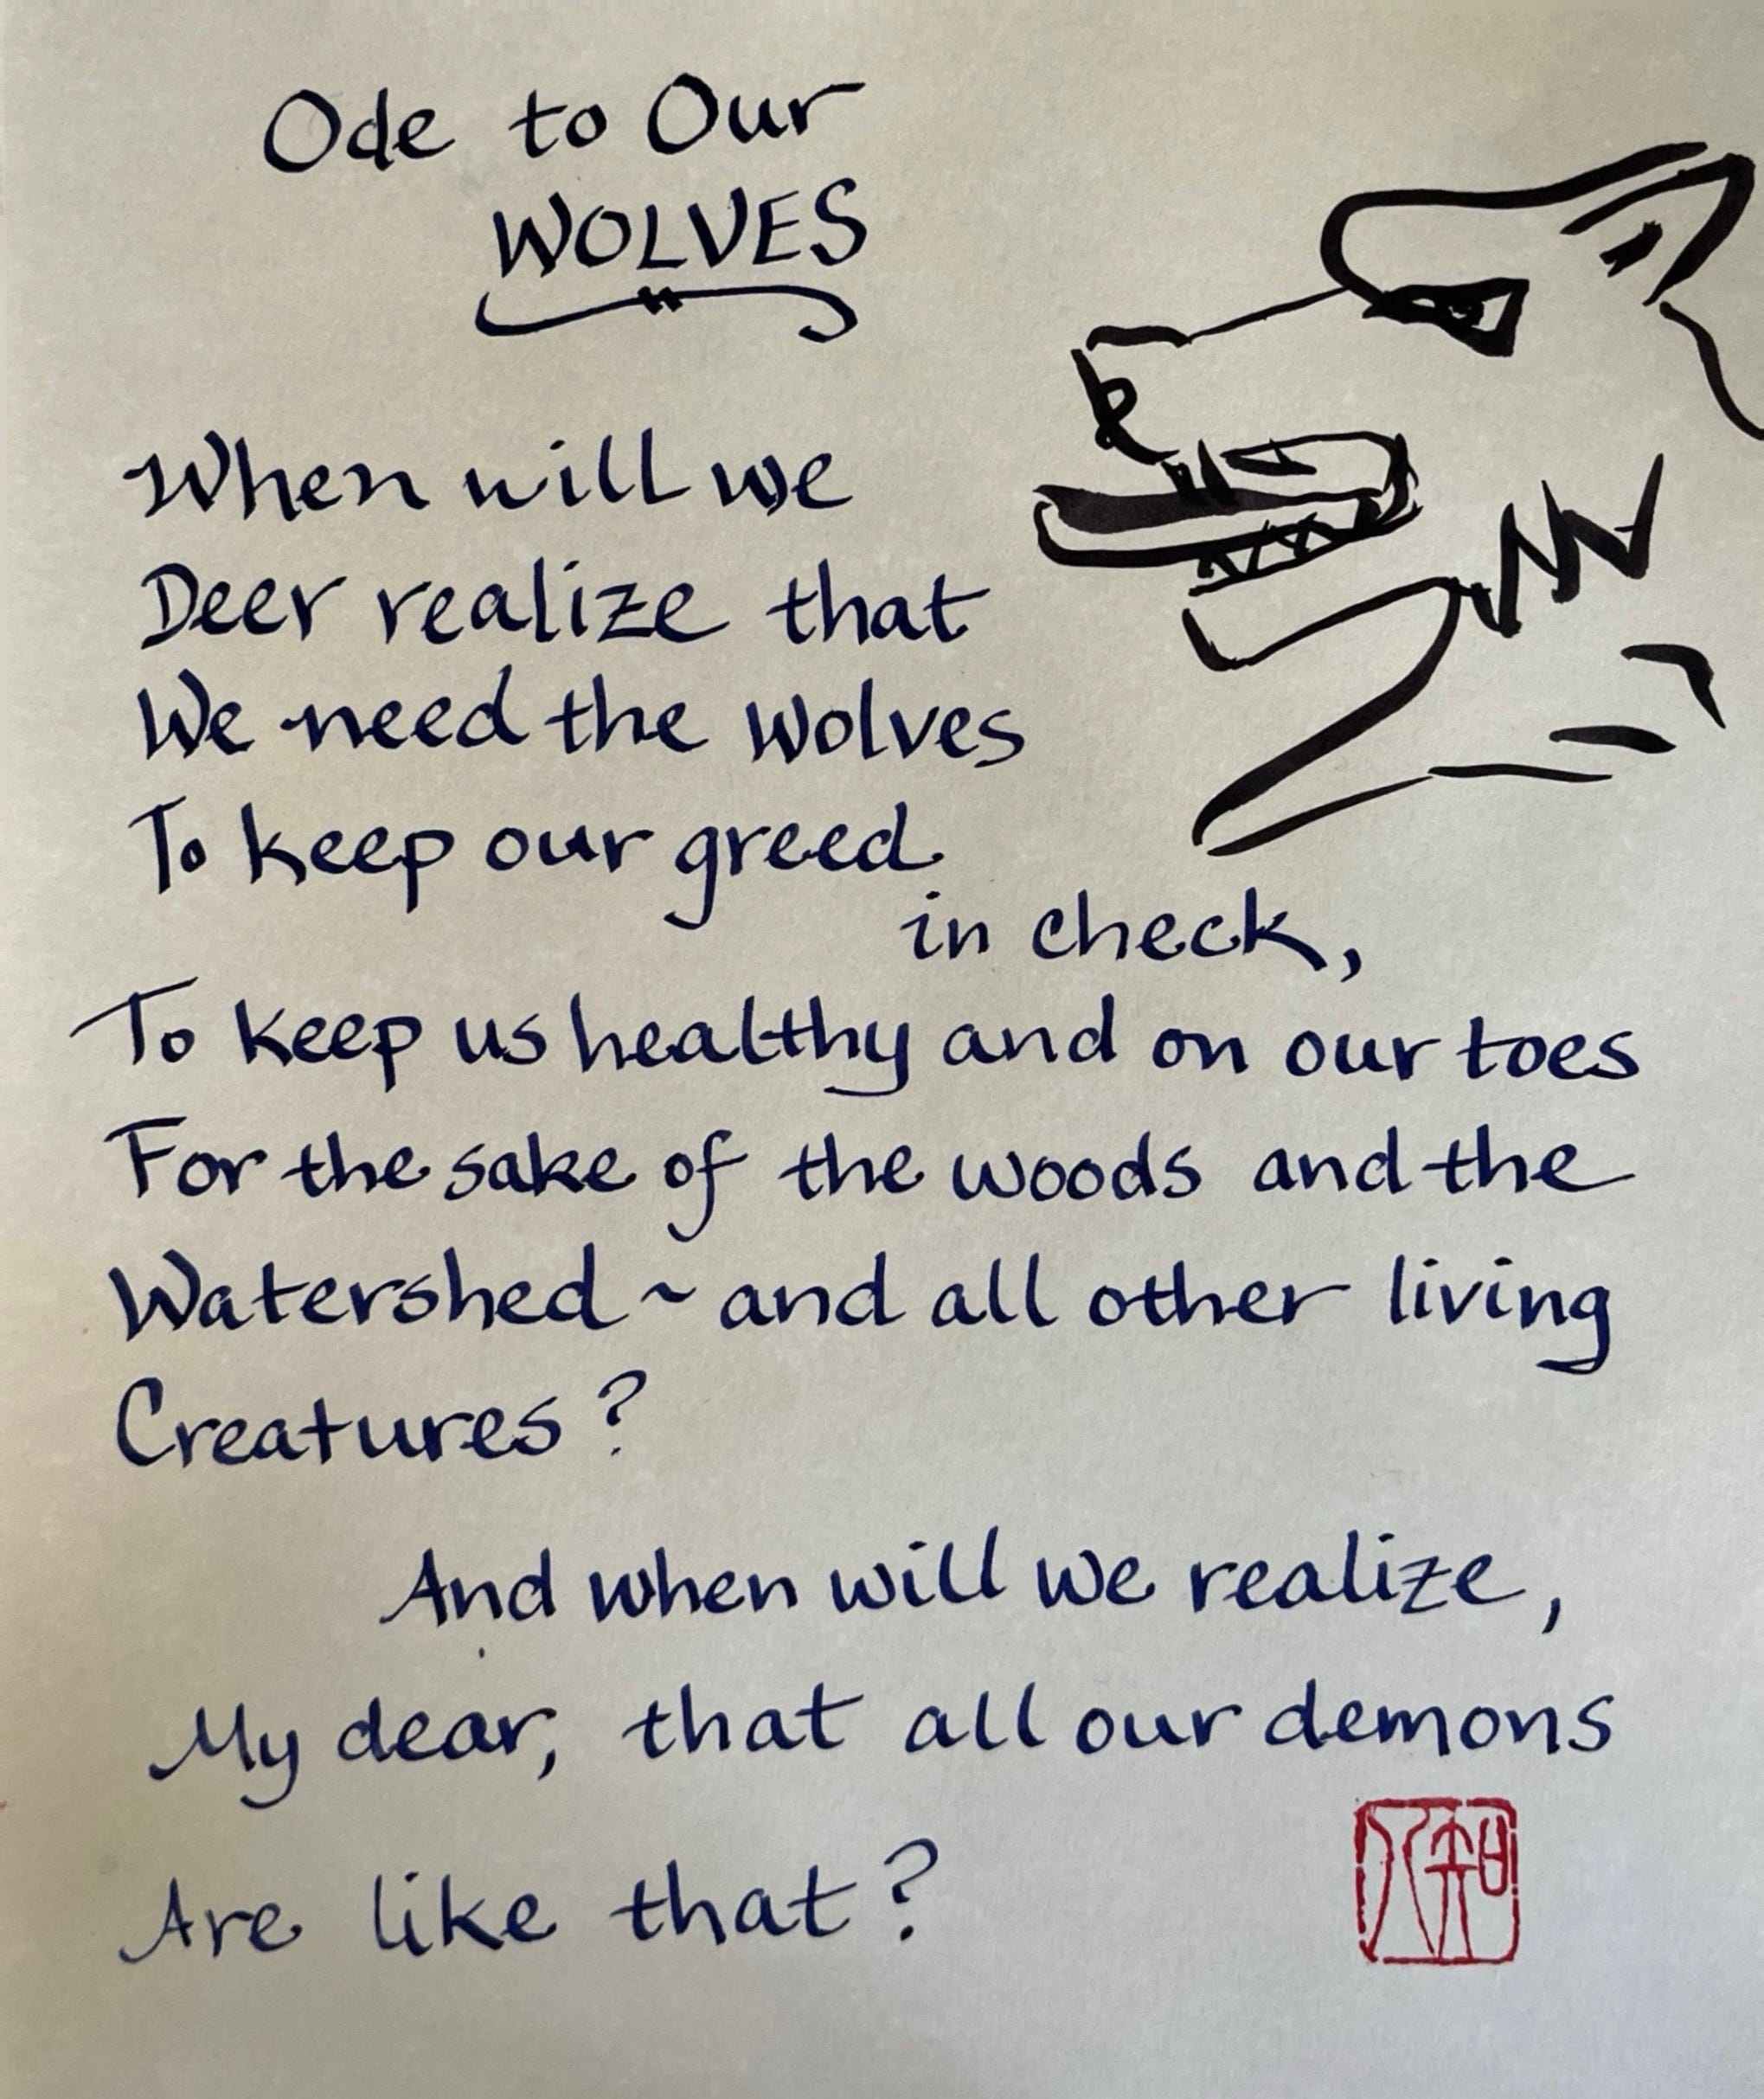 Ode to Our
WOLVES
When will we
Deer realize that
We need the wolves
To keep our greed
in check,
To keep us healthy and on our toes
For the sake of the woods and the
Watershed ~ and all other living
Creatures?
And when will we realize,
My dear, that all our demons
Are like that?